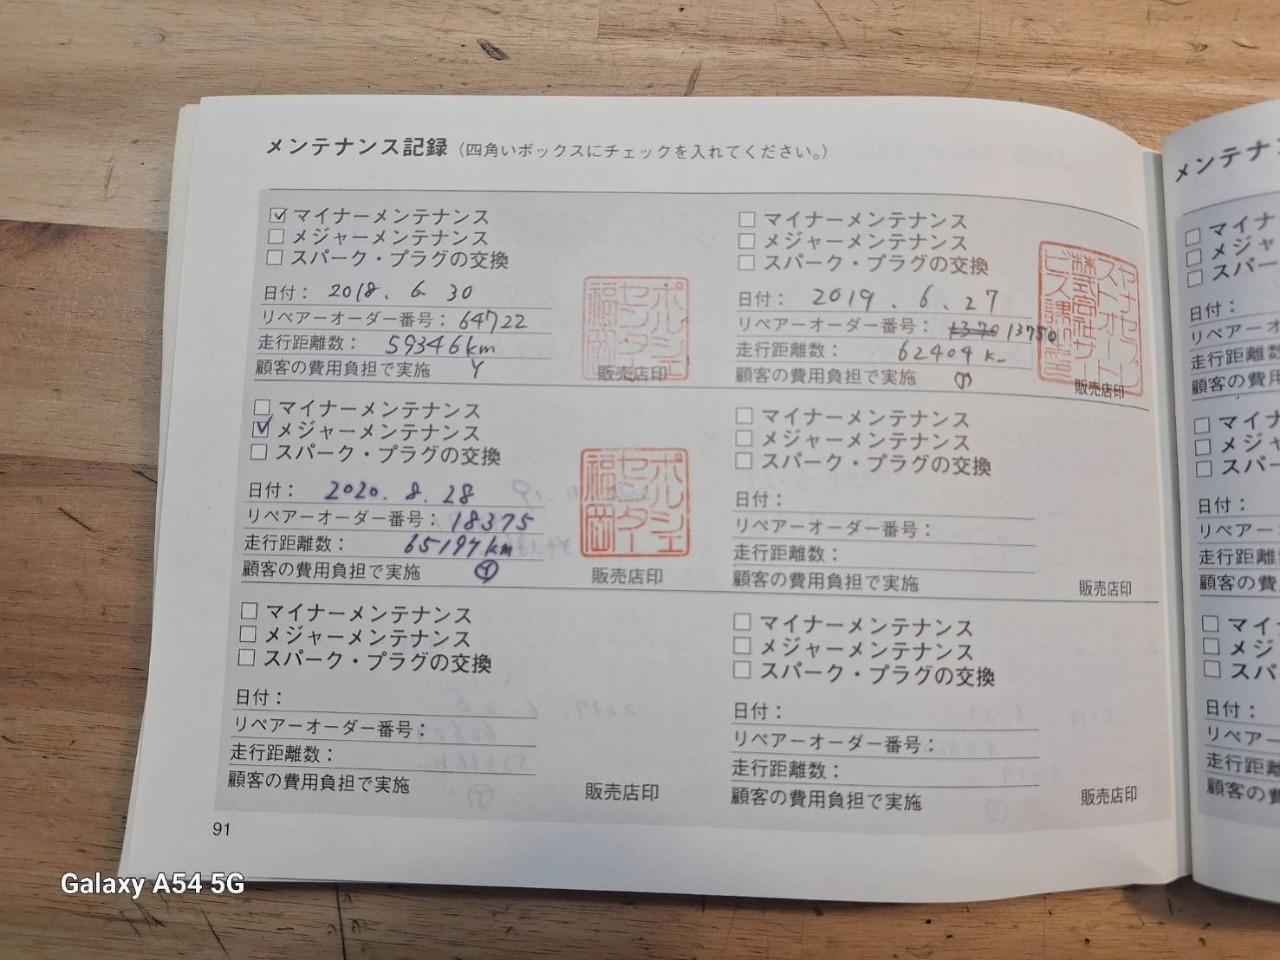 メンテナンス記録（四角いボックスにチェックを入れてください。）
マイナーメンテナンス
メジャーメンテナンス
スパーク・プラグの交換
日付： 2018. 6. 30
リペアーオーダー番号： 64722
走行距離数： 59346km
顧客の費用負担で実施 Y
ポルシェ
センター
福岡
販売店印
マイナーメンテナンス
メジャーメンテナンス
スパーク・プラグの交換
日付： 2019. 6. 27
リペアーオーダー番号： 13750
走行距離数： 62404K
顧客の費用負担で実施
ヤナセオート
株式会社サー
ビス課
販売店印
マイナーメンテナンス
メジャーメンテナンス
スパーク・プラグの交換
日付： 2020. 8. 28
リペアーオーダー番号： 18375
走行距離数： 65197km
顧客の費用負担で実施 Y
ポルシェ
センター
福岡
販売店印
マイナーメンテナンス
メジャーメンテナンス
スパーク・プラグの交換
日付：
リペアーオーダー番号：
走行距離数：
顧客の費用負担で実施
販売店印
マイナーメンテナンス
メジャーメンテナンス
スパーク・プラグの交換
日付：
リペアーオーダー番号：
走行距離数：
顧客の費用負担で実施
販売店印
マイナーメンテナンス
メジャーメンテナンス
スパーク・プラグの交換
日付：
リペアーオーダー番号：
走行距離数：
顧客の費用負担で実施
販売店印
91
メンテナン
マイナ
メジャ
スパー
日付：
リペアーオ
走行距離数
顧客の費用
マイナ
メジャ
スパー
日付：
リペアー
走行距離
顧客の費
マイナ
メジ
スパ
日付：
リペアー
走行距離
顧客の費
Galaxy A54 5G